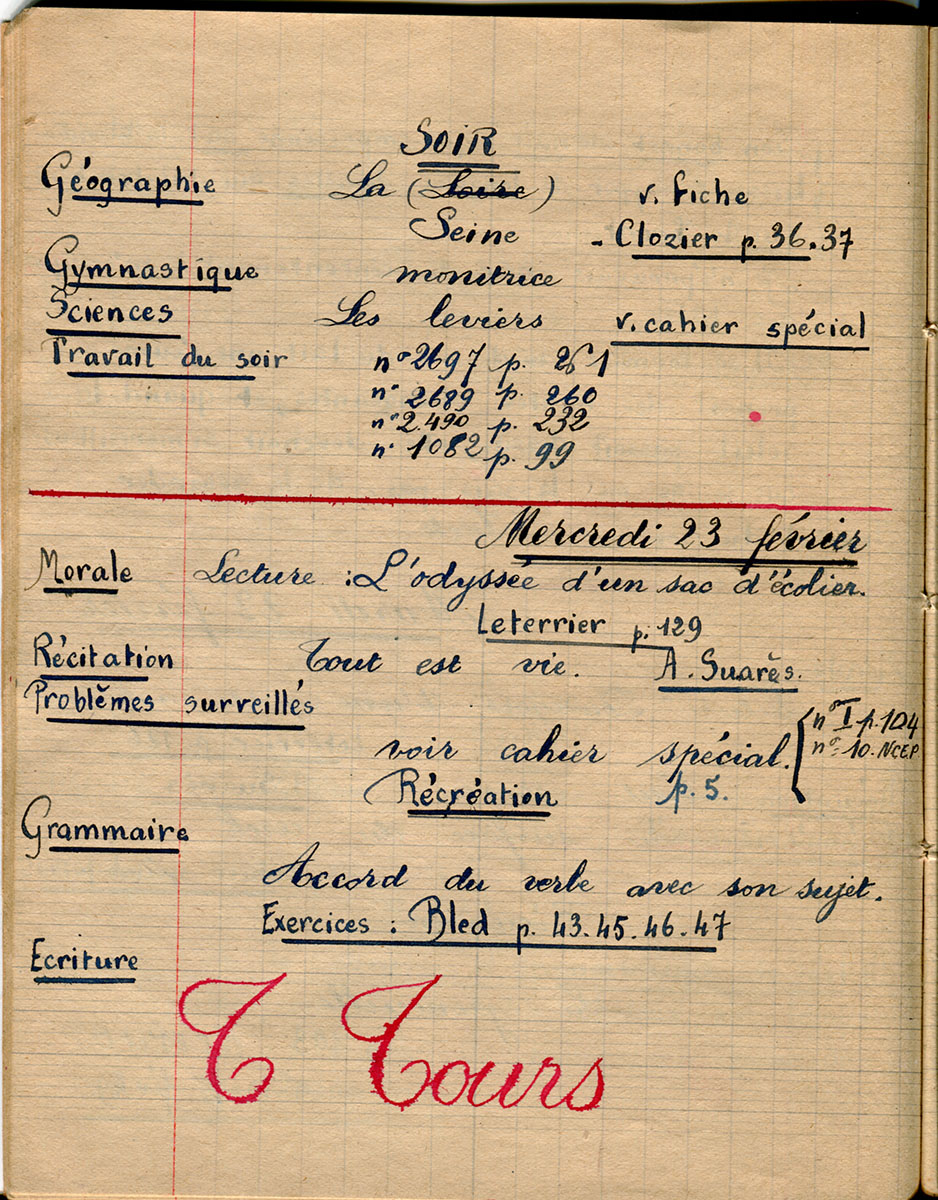 SOIR
Géographie La (Loire) v. fiche
Seine - Clozier p. 36.37
Gymnastique monitrice
Sciences Les leviers v. cahier spécial
Travail du soir n° 2697 p. 261
n° 2689 p. 260
n° 2.490 p. 232
n° 1082 p. 99
Mercredi 23 février
Morale Lecture : L'odyssée d'un sac d'écolier.
Leterrier p. 129
Récitation Tout est vie. A. Suarès.
Problèmes surveillés
n° I p. 104
voir cahier spécial. n° 10. NCEP
Récréation p. 5.
Grammaire
Accord du verbe avec son sujet.
Exercices : Bled p. 43.45.46.47
Ecriture
T Tours